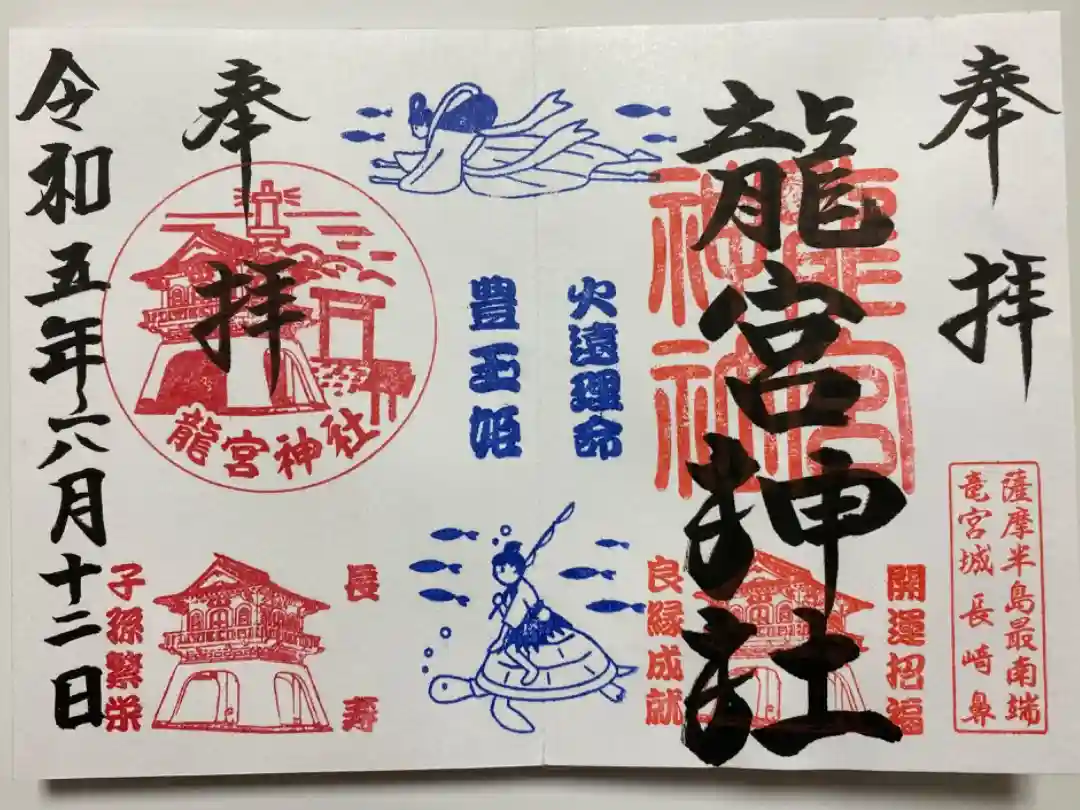 奉拝
薩摩半島最南端
竜宮城 長崎鼻
龍宮神社
龍宮
神社
開運招福
良縁成就
火遠理命
豊玉姫
長寿
子孫繁栄
奉拝
龍宮神社
令和五年六月十二日